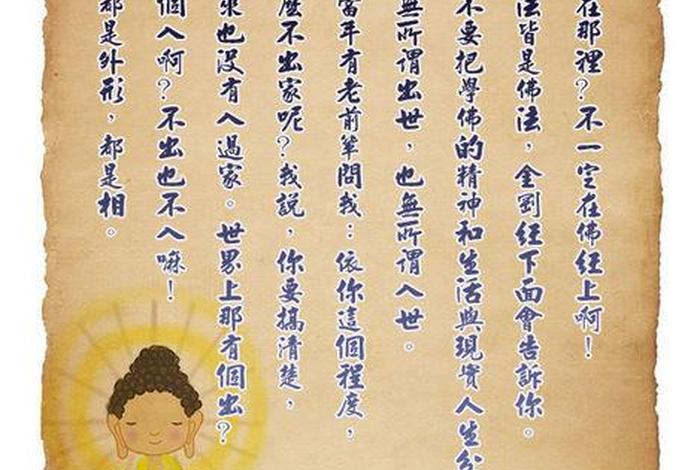 在那裡?不一定在佛經上啊!
法皆是佛法,金剛經下面會告訴你。
不要把學佛的精神和生活與現實人生分
無所謂出世,也無所謂入世。
當年有老前輩問我:依你這個程度,
麼不出家呢?我說,你要搞清楚,
來也沒有入過家。世界上那有個出?
個入啊?不出也不入嘛!
都是外形,都是相。